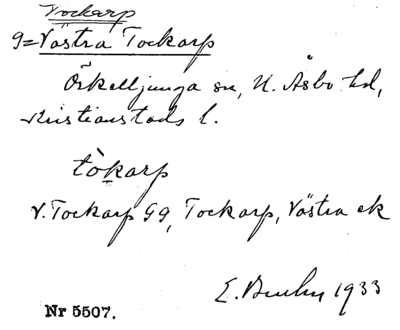 Tockarp
g=Västra Tockarp
Örkelljunga sn, N. Åsbo hd,
Kristianstads l.
tòkarp
V. Tockarp Gg, Tockarp, Västra ek
E. 1933
Nr 5507.